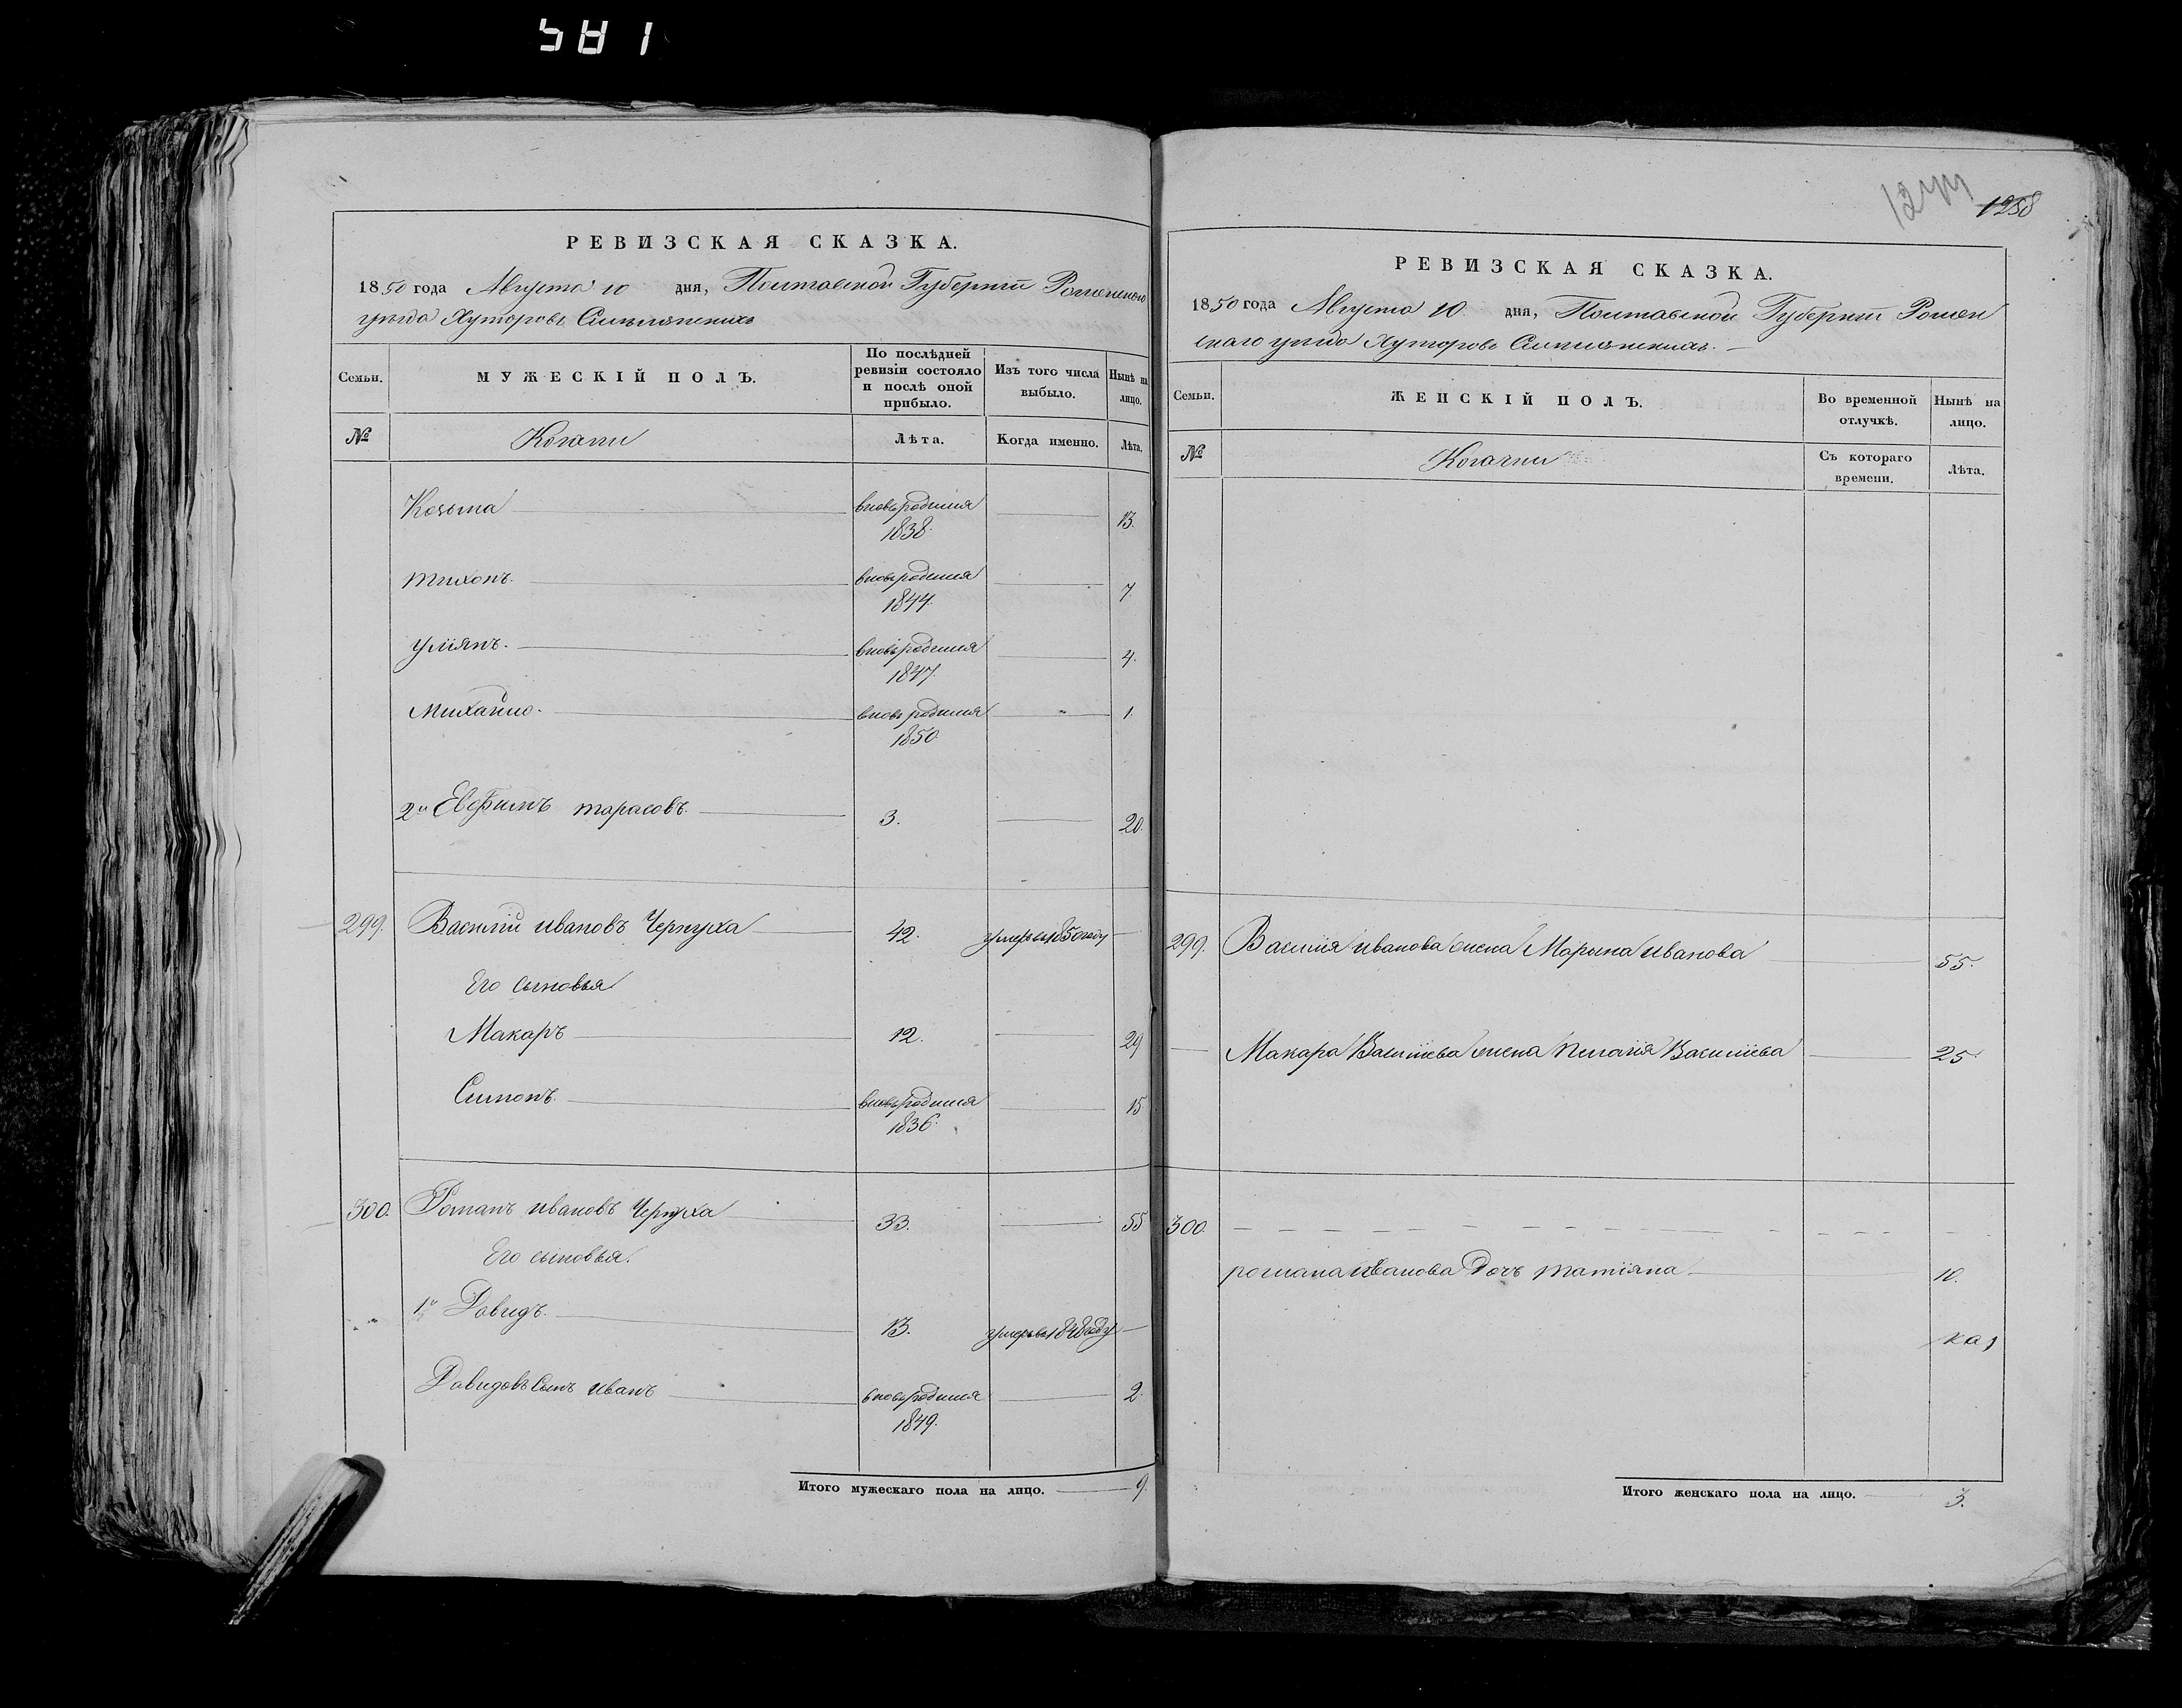 581
РЕВИЗСКАЯ СКАЗКА.
1850 года Августа 10 дня, Полтавской Губерніи Роменскаго
уезда Хуторовъ
Семьи.
МУЖЕСКІЙ ПОЛЪ.
По послѣдней ревизіи состояло и послѣ оной прибыло.
Изъ того числа выбыло.
Нынѣ на лицо.
№
Лѣта.
Когда именно.
Лѣта.
Козьма вновьродился 1838. 13.
Тихонъ. вновьродился 1844. 7.
Улiянъ. вновьродился 1847. 4.
Михайло. вновь родился 1850 1.
2й Евфимъ Тарасовъ. 3. 20.
299. Василiй Ивановъ Чернуха 42. умеръвъ1850году
Его Сыновья
Макаръ 12. 29
Симонъ. вновьродился 1836. 15
300. Романъ Ивановъ Чернуха 33. 55
Его сыновья.
1й Давидъ. 13. умеръвъ1848году
Давидовъ Сынъ Иванъ вновьродился 1849. 2.
Итого мужескаго пола на лицо. 9.
1258
РЕВИЗСКАЯ СКАЗКА.
1850 года Августа 10. дня, Полтавской Губерніи Ромен
скаго уезда Хуторовъ
Семьи.
ЖЕНСКІЙ ПОЛЪ.
Во временной отлучкѣ.
Нынѣ на лицо.
№
Съ котораго времени.
Лѣта.
299. Василiя Иванова жена Марина Иванова 55.
Макара Василiева жена Пелагiя Василiева 25.
300.
Романа Иванова Дочь Татiяна 10.
Итого женскаго пола на лицо. 3.